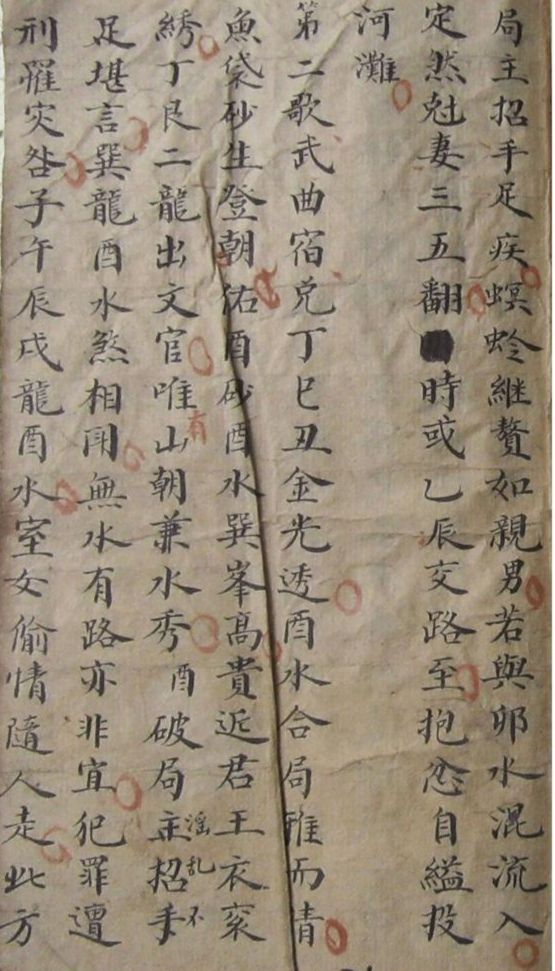 局主招手足疾螟蛉継赘如親男若與卯水混流入
定然尅妻三五翻時或乙辰交路至抱忿自縊投
河灘
第二歌武曲宿兌丁巳丑金光透酉水合局推而情
魚袋砂生登朝佑酉砂酉水巽峯髙貴近君王衣衮
綉丁艮二龍出文官唯有山朝兼水秀酉破局主淫乱不招手
足堪言巽龍酉水煞相開無水有路亦非宜犯罪遭
刑罹灾咎子午辰戌龍酉水室女偷情隨人走此方